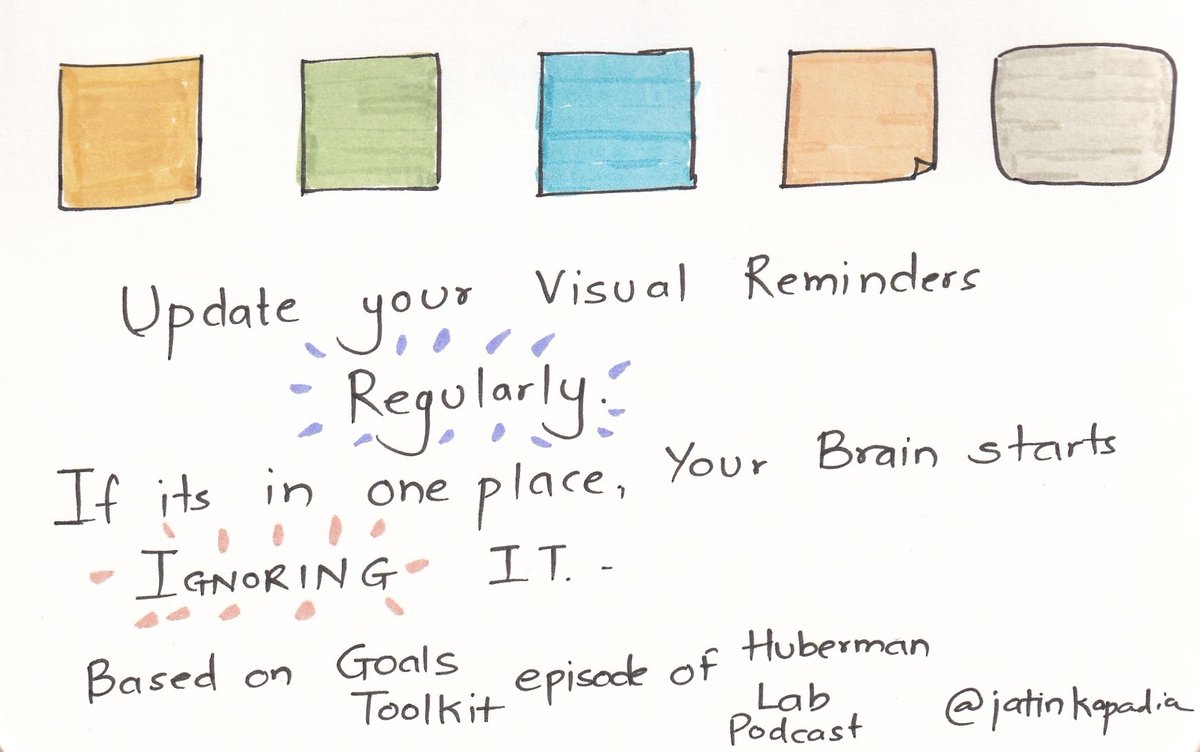 Update your Visual Reminders
Regularly.
If its in one place, Your Brain starts
IGNORING IT. -
Based on Goals Toolkit episode of Huberman Lab Podcast
@jatinkapadia